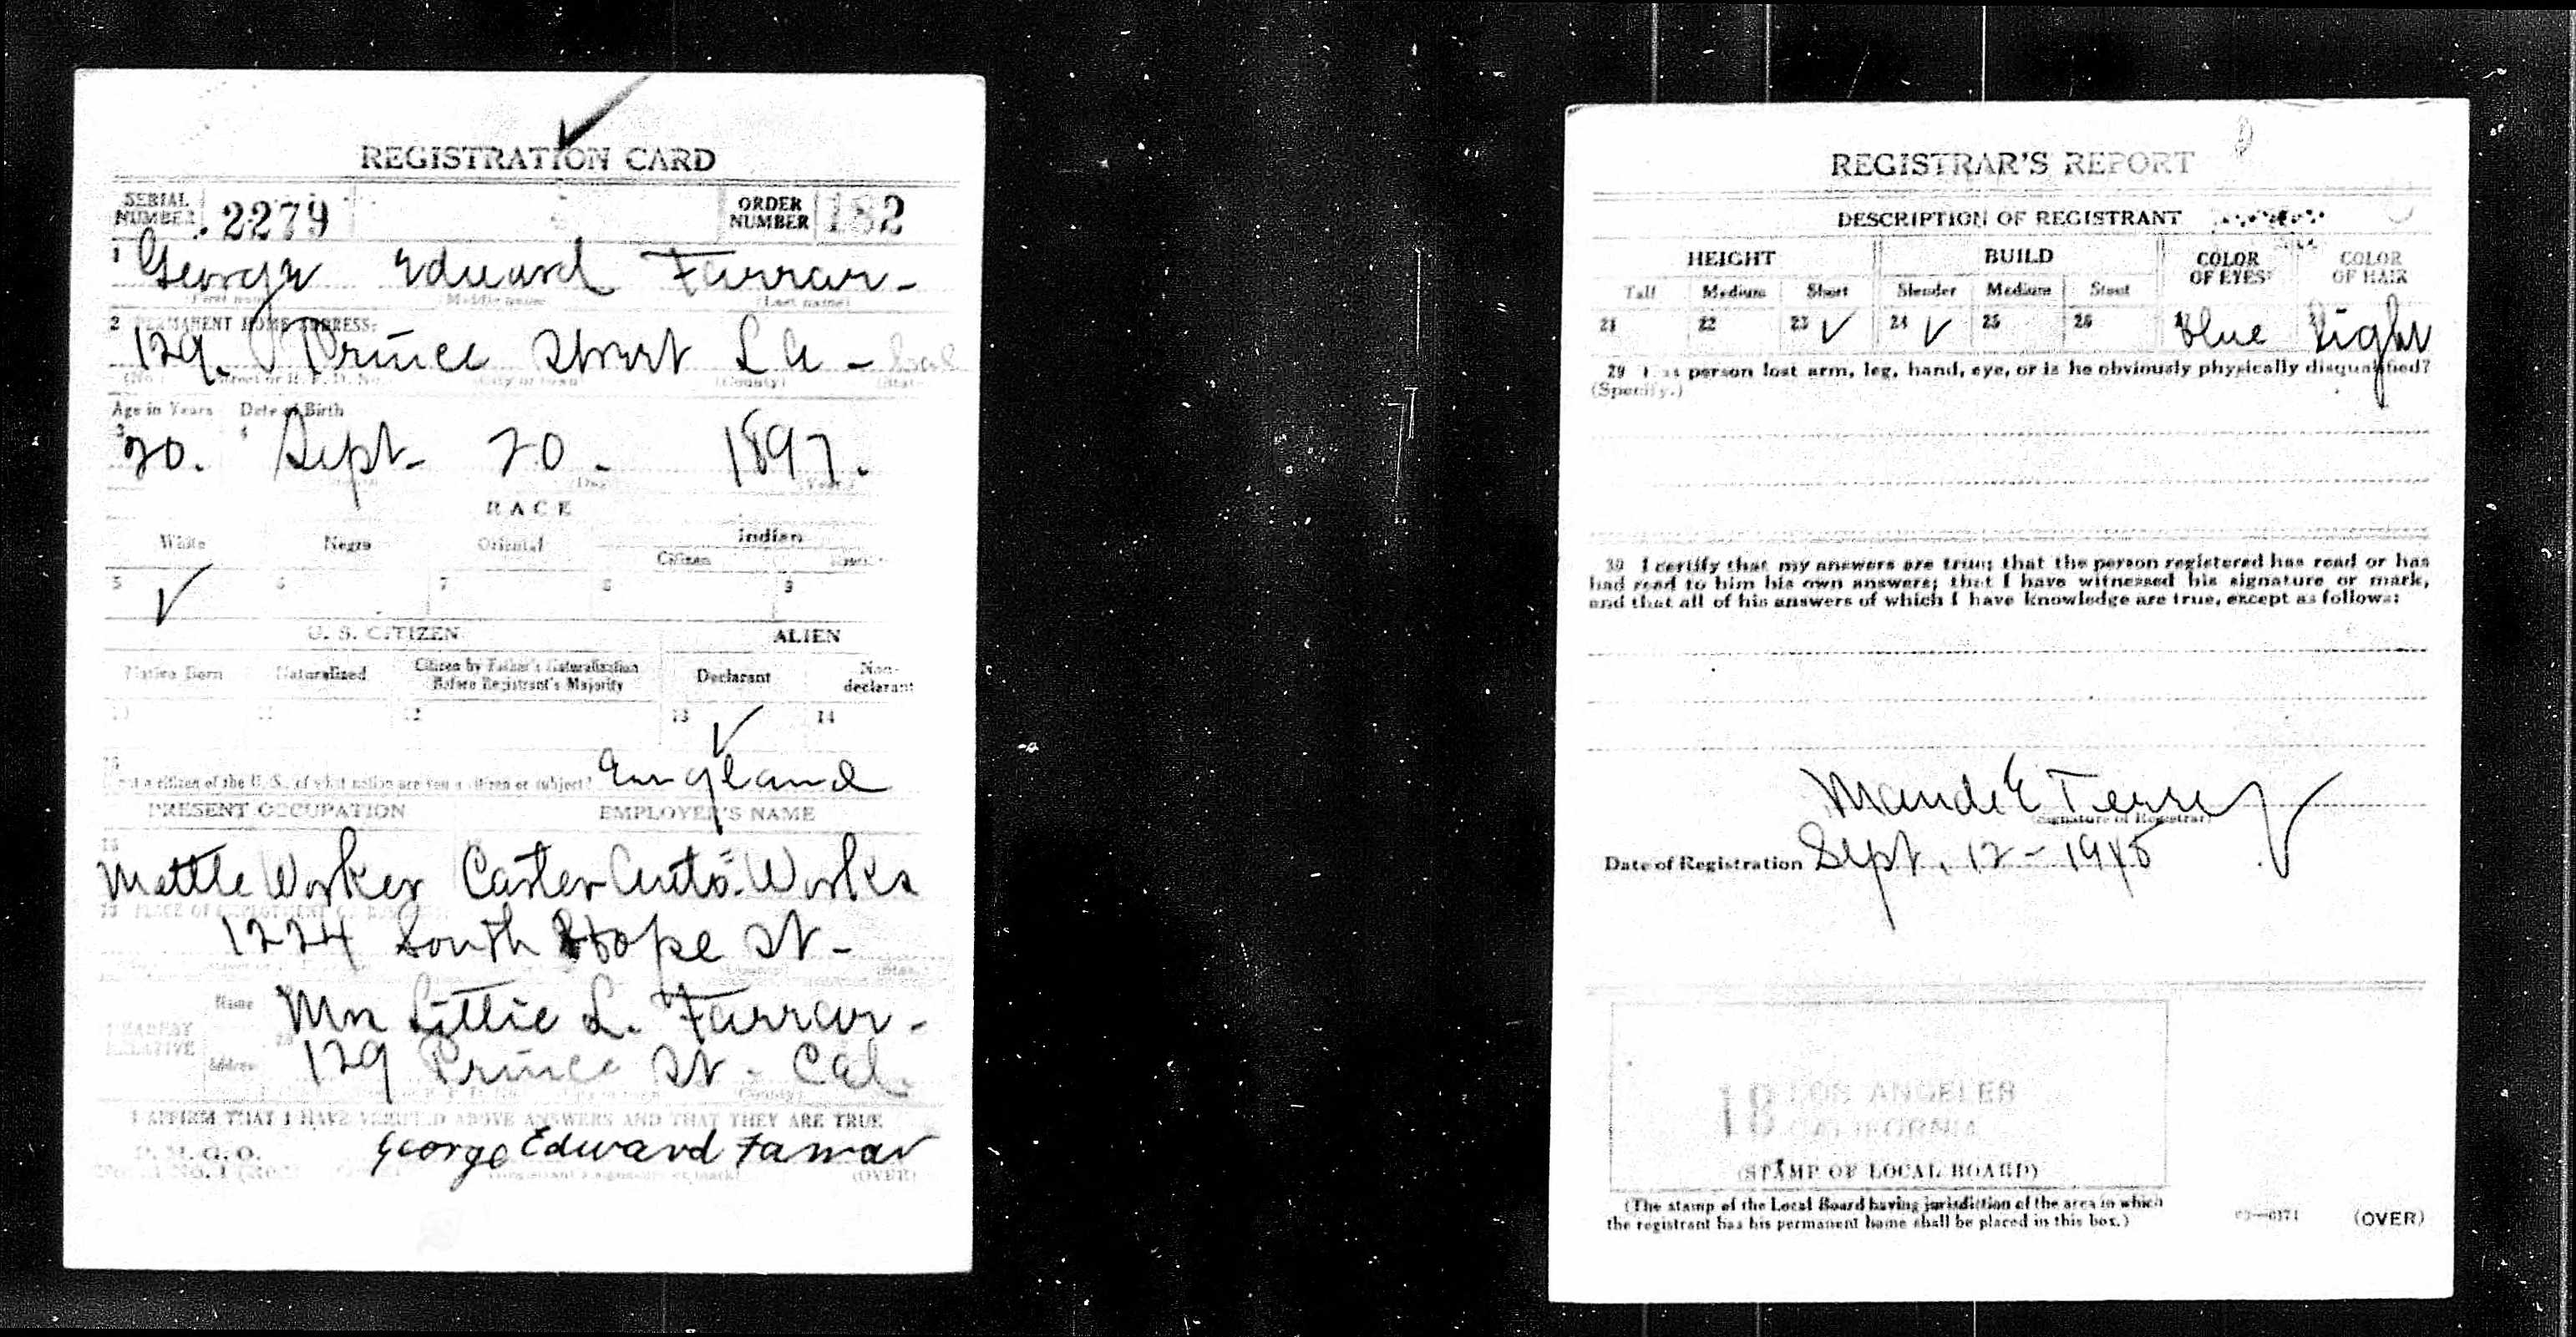 REGISTRATION CARD
SERIAL NUMBER 2279 ORDER NUMBER 182
1 George Edward Farrar -
(First name) (Middle name) (Last name)
2 PERMANENT HOME ADDRESS:
129. Prince Street LA - Cal
(No.) (Street or R. F. D. No.) (City or town) (County) (State)
Age in Years Date of Birth
3 20. 4 Sept - 20 - 1897.
(Day) (Year)
RACE
White Negro Oriental Indian
Citizen
5 ✓ 6 7 8 9
U. S. CITIZEN ALIEN
Native Born Naturalized Citizen by Father's Naturalization Before Registrant's Majority Declarant Non-declarant
10 11 12 13 ✓ 14
15
not a citizen of the U. S., of what nation are you a citizen or subject? England
PRESENT OCCUPATION EMPLOYER'S NAME
16 Mettle Worker Carter Auto. Works
1224 South Hope St -
(State)
NEAREST RELATIVE
Name Mrs Littie L. Farrar -
Address 129 Prince St - Cal.
(County)
I AFFIRM THAT I HAVE VERIFIED ABOVE ANSWERS AND THAT THEY ARE TRUE
P. M. G. O.
George Edward Farrar
(Registrant's signature or mark) (OVER)
REGISTRAR'S REPORT
DESCRIPTION OF REGISTRANT
HEIGHT BUILD COLOR OF EYES COLOR OF HAIR
Tall Medium Short Slender Medium Stout
21 22 23 ✓ 24 ✓ 25 26 Blue Light
29 Has person lost arm, leg, hand, eye, or is he obviously physically disqualified?
(Specify.)
30 I certify that my answers are true; that the person registered has read or has
had read to him his own answers; that I have witnessed his signature or mark,
and that all of his answers of which I have knowledge are true, except as follows:
Maude E Terry
(Signature of Registrar)
Date of Registration Sept. 12 -
18 LOS ANGELES
CALIFORNIA
(STAMP OF LOCAL BOARD)
(The stamp of the Local Board having jurisdiction of the area in which
the registrant has his permanent home shall be placed in this box.)
(OVER)